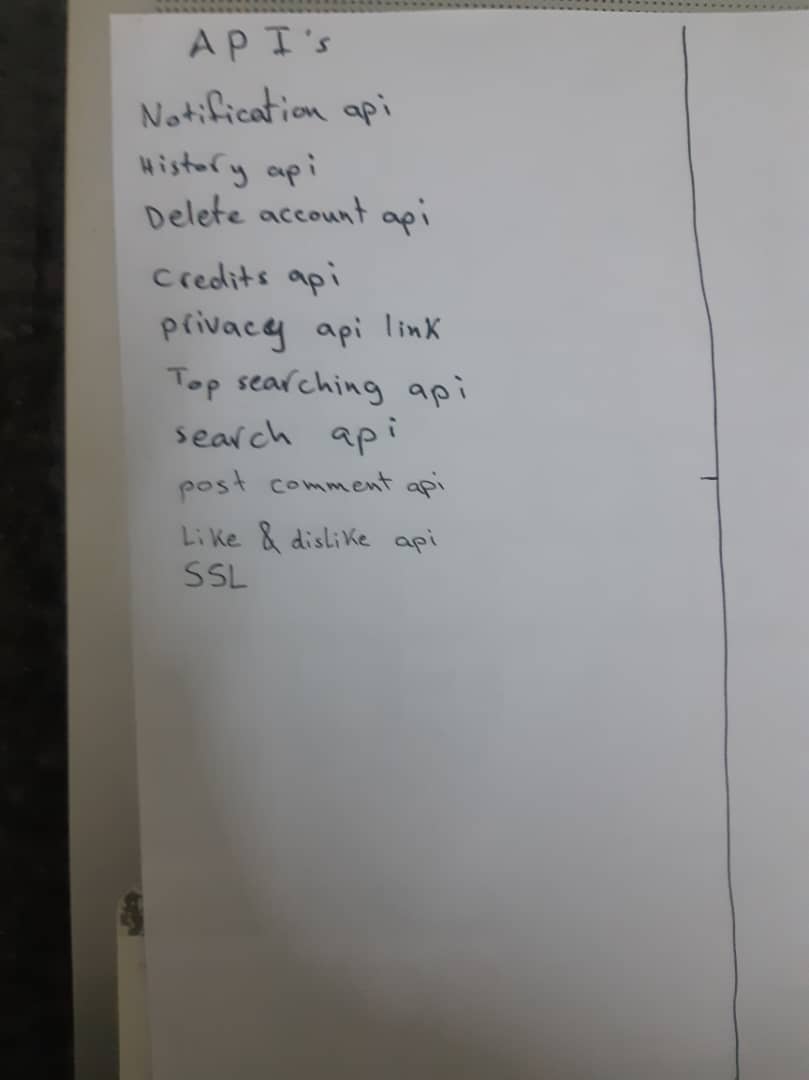 API's
Notification api
History api
Delete account api
Credits api
privacy api link
Top searching api
search api
post comment api
Like & dislike api
SSL